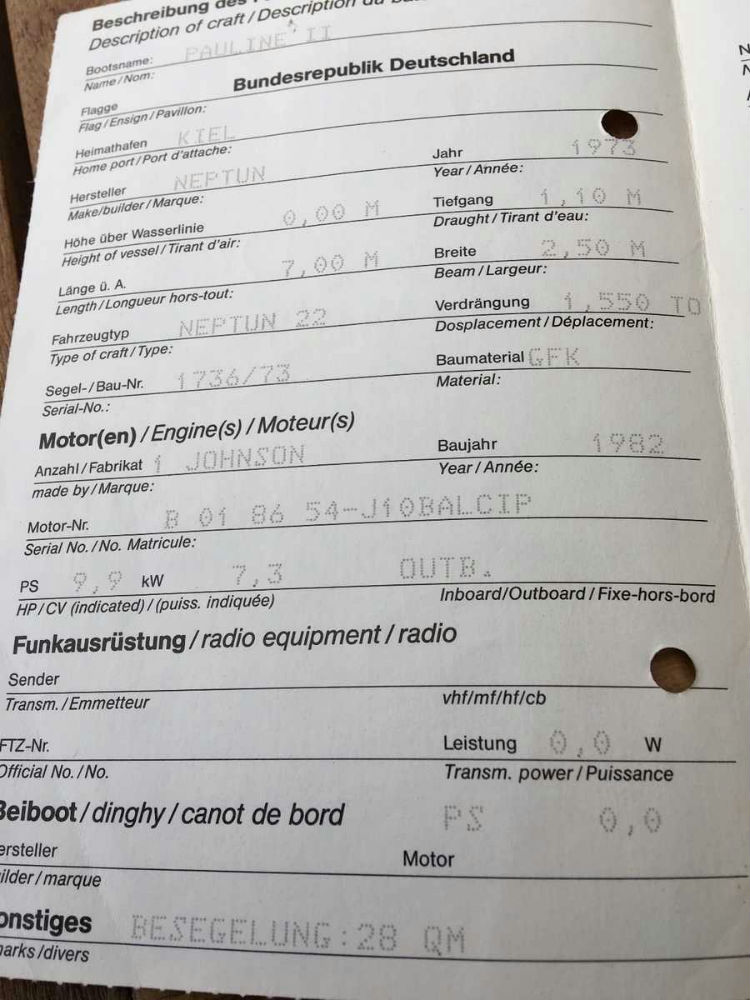 Beschreibung des
Description of craft / Description du
Bootsname: PAULINE II
Name / Nom:
Bundesrepublik Deutschland
Flagge
Flag / Ensign / Pavillon:
Heimathafen KIEL
Home port / Port d'attache:
Jahr 1973
Year / Année:
Hersteller NEPTUN
Make/builder / Marque:
Tiefgang 1,10 M
Draught / Tirant d'eau:
Höhe über Wasserlinie 0,00 M
Height of vessel / Tirant d'air:
Breite 2,50 M
Beam / Largeur:
Länge ü. A. 7,00 M
Length / Longueur hors-tout:
Verdrängung 1,550 TO
Dosplacement / Déplacement:
Fahrzeugtyp NEPTUN 22
Type of craft / Type:
Baumaterial GFK
Material:
Segel- / Bau-Nr. 1736/73
Serial-No.:
Motor(en) / Engine(s) / Moteur(s)
Anzahl / Fabrikat 1 JOHNSON
made by / Marque:
Baujahr 1982
Year / Année:
Motor-Nr. B 01 86 54-J10BALCIP
Serial No. / No. Matricule:
PS 9,9 kW 7,3 OUTB.
HP / CV (indicated) / (puiss. indiquée) Inboard/Outboard / Fixe-hors-bord
Funkausrüstung / radio equipment / radio
Sender
Transm. / Emmetteur vhf/mf/hf/cb
FTZ-Nr. Leistung 0,0 W
Official No. / No. Transm. power / Puissance
Beiboot / dinghy / canot de bord PS 0,0
ersteller Motor
ilder / marque
onstiges BESEGELUNG:28 QM
arks /divers